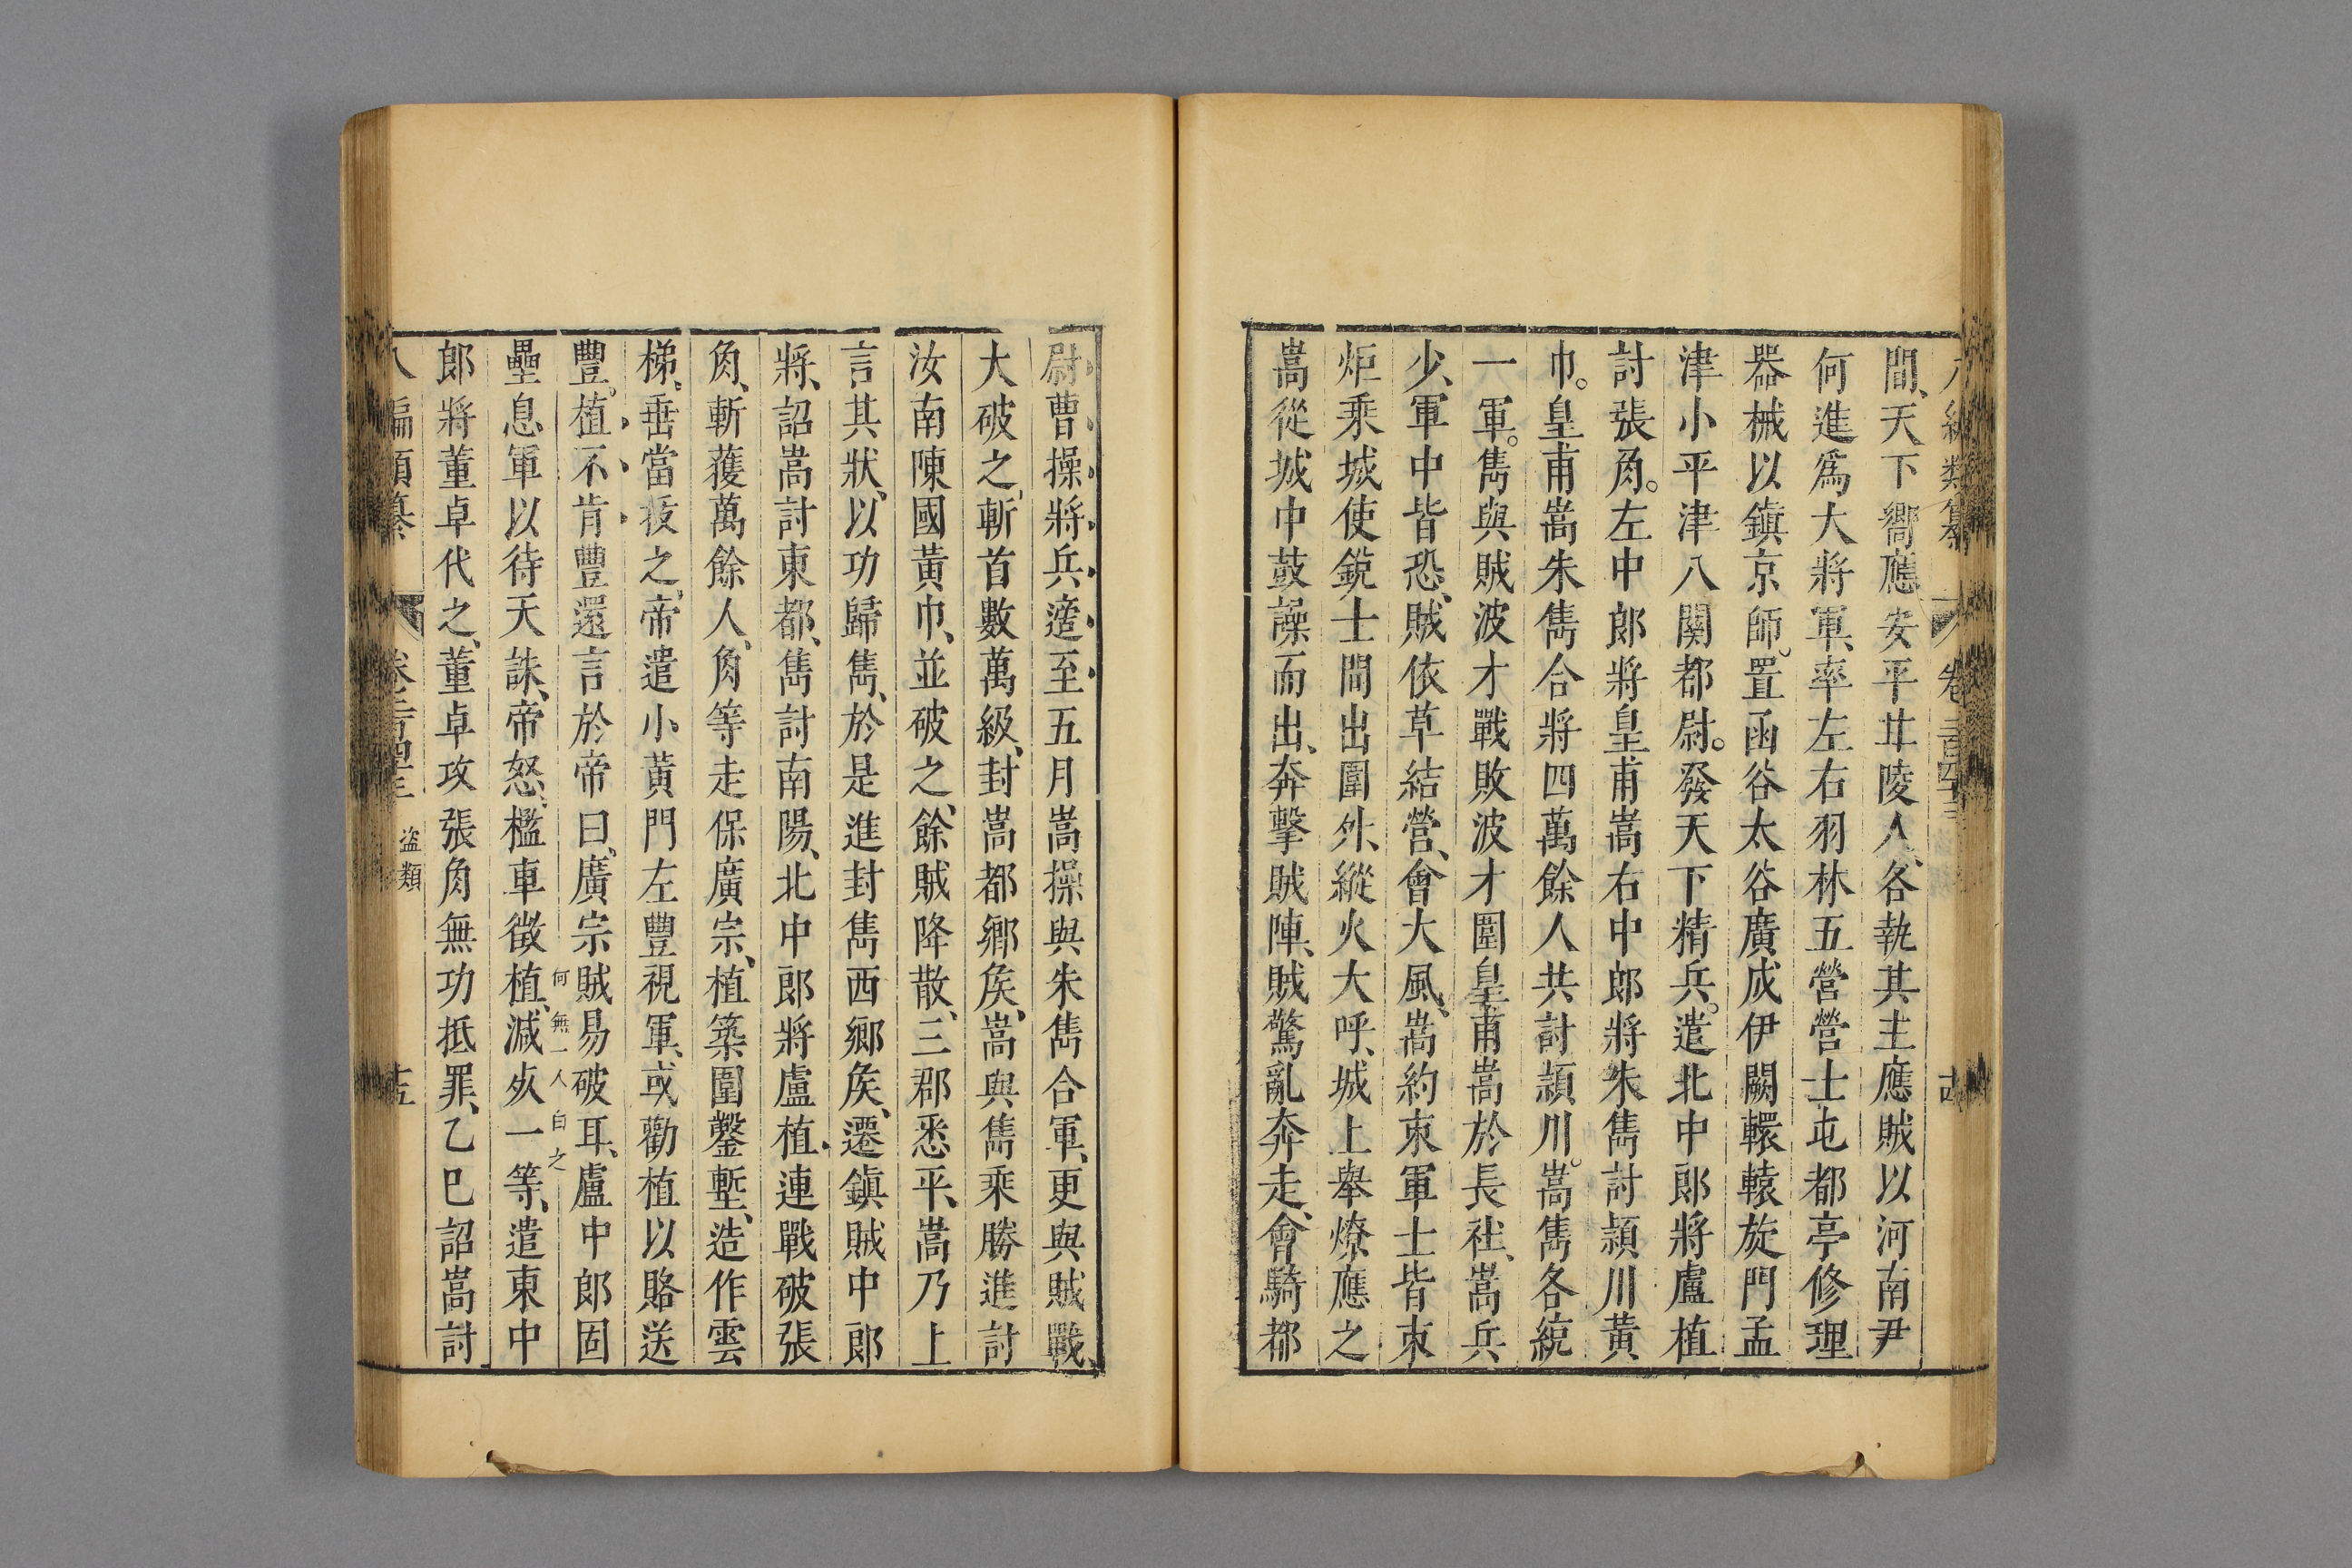 間、天下嚮應、安平甘陵人、各執其主應賊以河南尹
何進爲大將軍、率左右羽林五營營士屯都亭修理
器械以鎮京師。置函谷太谷廣成伊闕轘轅旋門孟
津小平津八關都尉。發天下精兵。遣北中郎將盧植
討張角。左中郎將皇甫嵩右中郎將朱雋討潁川黃
巾。皇甫嵩朱雋合將四萬餘人共討潁川。嵩雋各統
一軍。雋與賊波才戰敗波才圍皇甫嵩於長社、嵩兵
少、軍中皆恐、賊依草結營、會大風、嵩約束軍士皆束
炬乘城使銳士間出圍外、縱火大呼、城上舉燎應之
嵩從城中鼓譟而出、奔擊賊陣、賊驚亂奔走、會騎都
尉曹操將兵適至五月嵩操與朱雋合軍、更與賊戰、
大破之、斬首數萬級、封嵩都鄉矦、嵩與雋乘勝進討
汝南陳國黃巾、並破之、餘賊降散、三郡悉平、嵩乃上
言其狀、以功歸雋、於是進封雋西鄉矦、遷鎮賊中郎
將、詔嵩討東都、雋討南陽、北中郎將盧植、連戰破張
角、斬獲萬餘人、角等走保廣宗、植築圍鑿塹、造作雲
梯、垂當拔之、帝遣小黃門左豐視軍、或勸植以賂送
豐。植不肯豐還言於帝曰、廣宗賊易破耳、盧中郎固
何無一人白之
壘息軍以待天誅、帝怒、檻車徵植、減死一等、遣東中
郎將董卓代之、董卓攻張角無功抵罪、乙巳詔嵩討
八編類纂
盜類